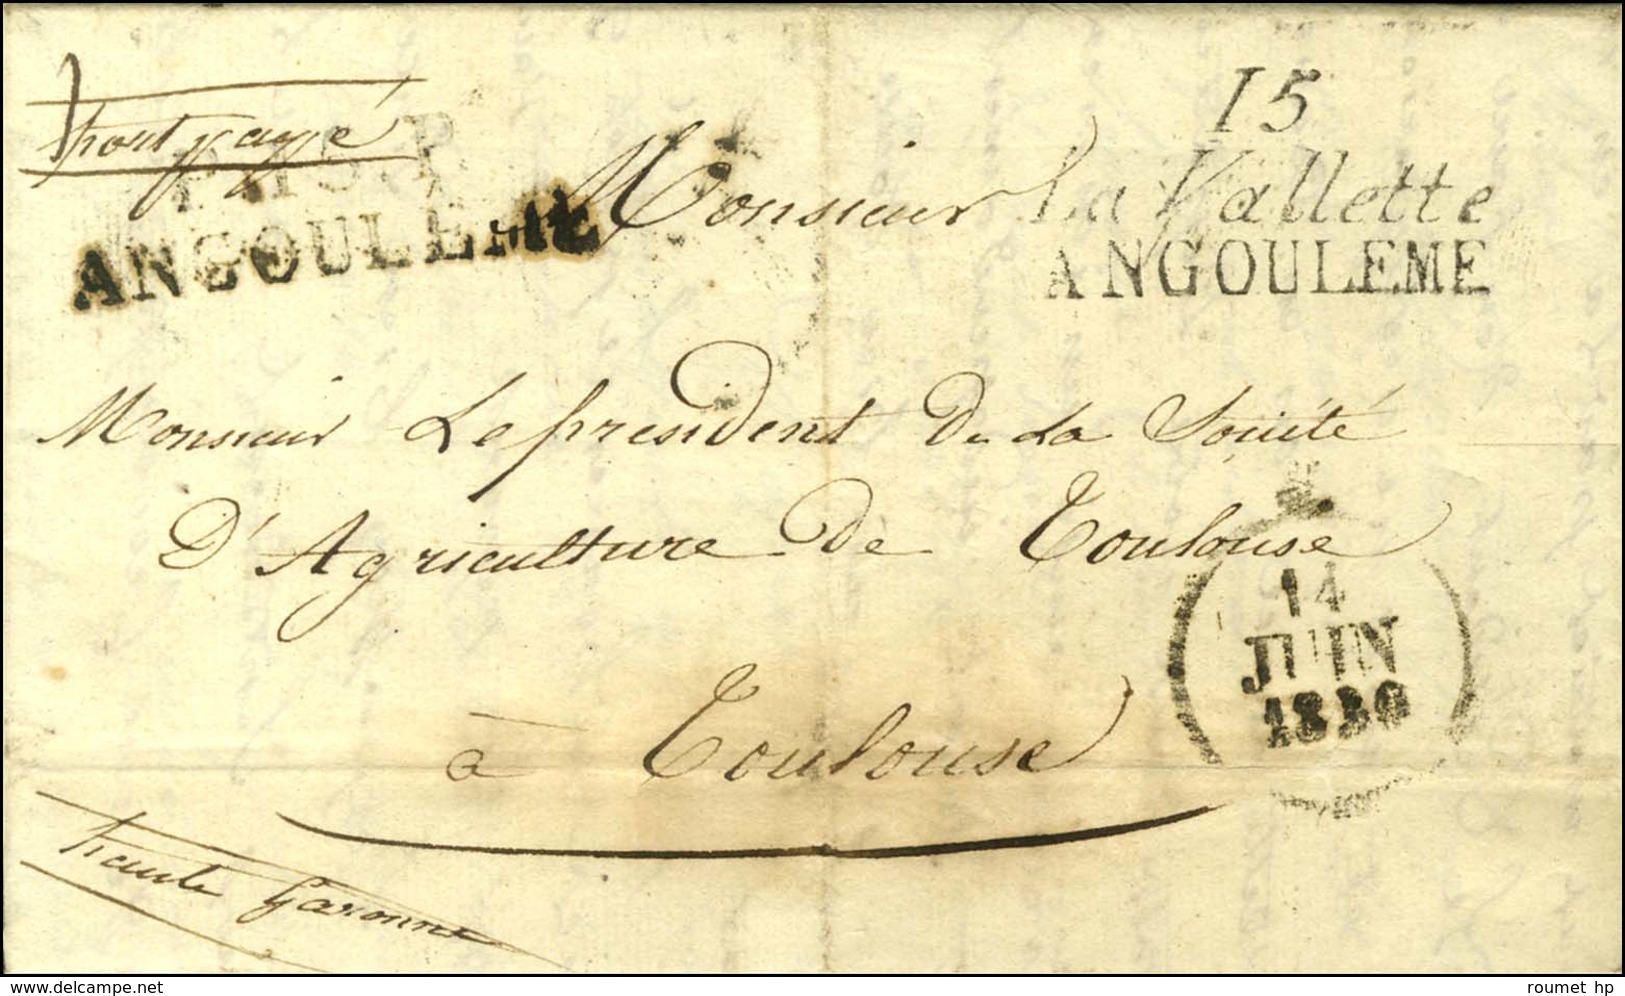 port payé
P.15.P
ANGOULEME
15
La Vallette
ANGOULEME
Monsieur
Monsieur Le president De La Société
D'Agriculture de Toulouse
à Toulouse
haute Garonne
14
JUIN
1830
roumet hp